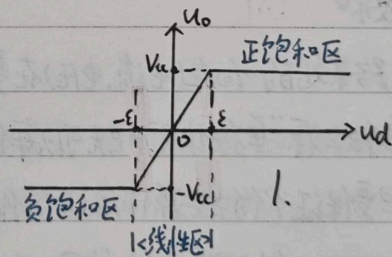 Uo
Vcc
正饱和区
-ε
0
ε
Ud
负饱和区
-Vcc
1.
线性区